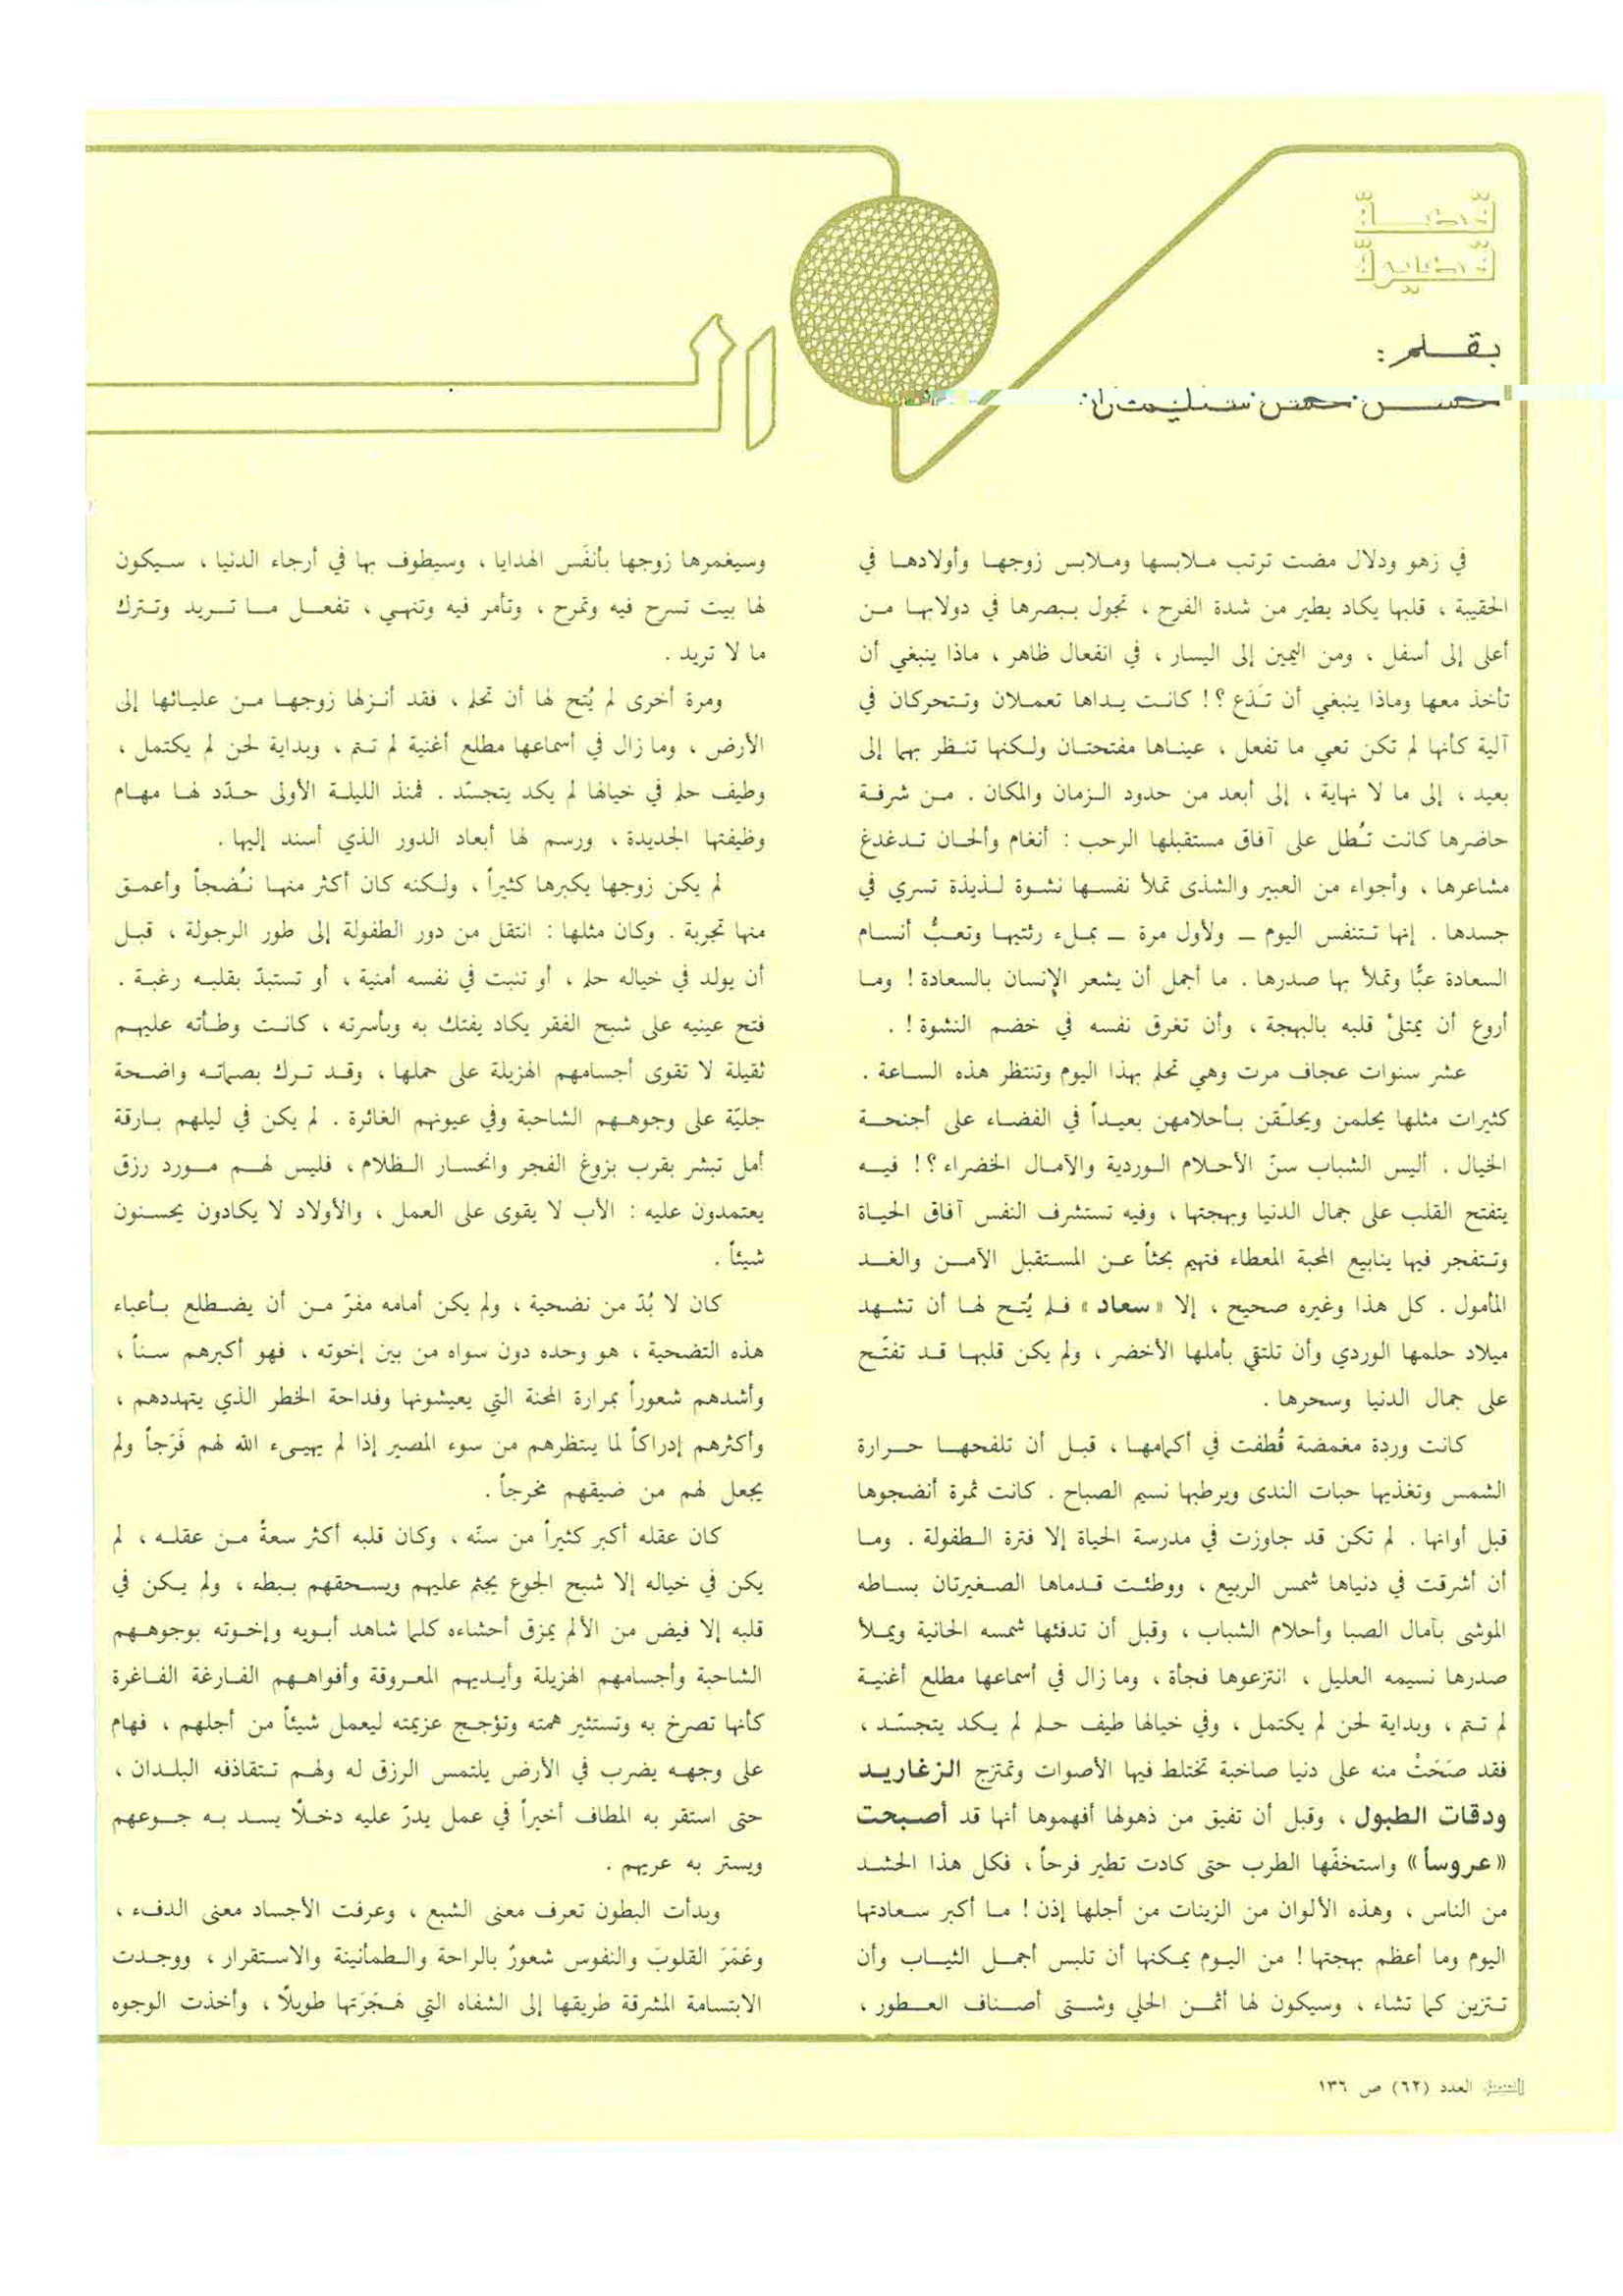 قصة
قصيرة
بقلم:
حسن حسن سليمان
في زهو ودلال مضت ترتب ملابسها وملابس زوجها وأولادها في
الحقيبة ، قلبها يكاد يطير من شدة الفرح ، تجول ببصرها في دولابها من
أعلى إلى أسفل ، ومن اليمين إلى اليسار ، في انفعال ظاهر ، ماذا ينبغي أن
تأخذ معها وماذا ينبغي أن تَدَع ؟! كانت يداها تعملان وتتحركان في
آلية كأنها لم تكن تعي ما تفعل ، عيناها مفتحتان ولكنها تنظر بهما إلى
بعيد ، إلى ما لا نهاية ، إلى أبعد من حدود الزمان والمكان . من شرفة
حاضرها كانت تُطل على آفاق مستقبلها الرحب : أنغام وألحان تدغدغ
مشاعرها ، وأجواء من العبير والشذى تملأ نفسها نشوة لذيذة تسري في
جسدها . إنها تتنفس اليوم – ولأول مرة – بملء رئتيها وتعبُّ أنسام
السعادة عبًّا وتملأ بها صدرها . ما أجمل أن يشعر الإنسان بالسعادة ! وما
أروع أن يمتلئ قلبه بالبهجة ، وأن تغرق نفسه في خضم النشوة ! .
عشر سنوات عجاف مرت وهي تحلم بهذا اليوم وتنتظر هذه الساعة .
كثيرات مثلها يحلمن ويحلّقن بأحلامهن بعيداً في الفضاء على أجنحة
الخيال . أليس الشباب سنّ الأحلام الوردية والآمال الخضراء ؟! فيه
يتفتح القلب على جمال الدنيا وبهجتها ، وفيه تستشرف النفس آفاق الحياة
وتتفجر فيها ينابيع المحبة المعطاء فتهيم بحثاً عن المستقبل الآمن والغد
المأمول . كل هذا وغيره صحيح ، إلا « سعاد » فلم يُتح لها أن تشهد
ميلاد حلمها الوردي وأن تلتقي بأملها الأخضر ، ولم يكن قلبها قد تفتّح
على جمال الدنيا وسحرها .
كانت وردة مغمضة قُطفت في أكمامها ، قبل أن تلفحها حرارة
الشمس وتغذيها حبات الندى ويرطبها نسيم الصباح . كانت ثمرة أنضجوها
قبل أوانها . لم تكن قد جاوزت في مدرسة الحياة إلا فترة الطفولة . وما
أن أشرقت في دنياها شمس الربيع ، ووطئت قدماها الصغيرتان بساطه
الموشى بآمال الصبا وأحلام الشباب ، وقبل أن تدفئها شمسه الحانية ويملأ
صدرها نسيمه العليل ، انتزعوها فجأة ، وما زال في أسماعها مطلع أغنية
لم تتم ، وبداية لحن لم يكتمل ، وفي خيالها طيف حلم لم يكد يتجسّد ،
فقد صَحَتْ منه على دنيا صاخبة تختلط فيها الأصوات وتمتزج الزغاريد
ودقات الطبول ، وقبل أن تفيق من ذهولها أفهموها أنها قد أصبحت
« عروساً » واستخفّها الطرب حتى كادت تطير فرحاً ، فكل هذا الحشد
من الناس ، وهذه الألوان من الزينات من أجلها إذن ! ما أكبر سعادتها
اليوم وما أعظم بهجتها ! من اليوم يمكنها أن تلبس أجمل الثياب وأن
تتزين كما تشاء ، وسيكون لها أثمن الحلي وشتى أصناف العطور ،
وسيغمرها زوجها بأنفَس الهدايا ، وسيطوف بها في أرجاء الدنيا ، سيكون
لها بيت تسرح فيه وتمرح ، وتأمر فيه وتنهي ، تفعل ما تريد وتترك
ما لا تريد .
ومرة أخرى لم يُتح لها أن تحلم ، فقد أنزلها زوجها من عليائها إلى
الأرض ، وما زال في أسماعها مطلع أغنية لم تتم ، وبداية لحن لم يكتمل ،
وطيف حلم في خيالها لم يكد يتجسّد . فمنذ الليلة الأولى حدّد لها مهام
وظيفتها الجديدة ، ورسم لها أبعاد الدور الذي أسند إليها .
لم يكن زوجها يكبرها كثيراً ، ولكنه كان أكثر منها نُضجاً وأعمق
منها تجربة . وكان مثلها : انتقل من دور الطفولة إلى طور الرجولة ، قبل
أن يولد في خياله حلم ، أو تنبت في نفسه أمنية ، أو تستبدّ بقلبه رغبة .
فتح عينيه على شبح الفقر يكاد يفتك به وبأسرته ، كانت وطأته عليهم
ثقيلة لا تقوى أجسامهم الهزيلة على حملها ، وقد ترك بصماته واضحة
جليّة على وجوههم الشاحبة وفي عيونهم الغائرة . لم يكن في ليلهم بارقة
أمل تبشر بقرب بزوغ الفجر وانحسار الظلام ، فليس لهم مورد رزق
يعتمدون عليه : الأب لا يقوى على العمل ، والأولاد لا يكادون يحسنون
شيئاً .
كان لا بُدّ من نضحية ، ولم يكن أمامه مفرّ من أن يضطلع بأعباء
هذه التضحية ، هو وحده دون سواه من بين إخوته ، فهو أكبرهم سناً ،
وأشدهم شعوراً بمرارة المحنة التي يعيشونها وفداحة الخطر الذي يتهددهم ،
وأكثرهم إدراكاً لما ينتظرهم من سوء المصير إذا لم يهيىء الله لهم فَرَجاً ولم
يجعل لهم من ضيقهم مخرجاً .
كان عقله أكبر كثيراً من سنّه ، وكان قلبه أكثر سعةً من عقله ، لم
يكن في خياله إلا شبح الجوع يجثم عليهم ويسحقهم ببطء ، ولم يكن في
قلبه إلا فيض من الألم يمزق أحشاءه كلما شاهد أبويه وإخوته بوجوههم
الشاحبة وأجسامهم الهزيلة وأيديهم المعروقة وأفواههم الفارغة الفاغرة
كأنها تصرخ به وتستثير همته وتؤجج عزيمته ليعمل شيئاً من أجلهم ، فهام
على وجهه يضرب في الأرض يلتمس الرزق له ولهم تتقاذفه البلدان ،
حتى استقر به المطاف أخيراً في عمل يدرّ عليه دخلاً يسد به جوعهم
ويستر به عريهم .
وبدأت البطون تعرف معنى الشبع ، وعرفت الأجساد معنى الدفء ،
وغَمَرَ القلوبَ والنفوس شعورٌ بالراحة والطمأنينة والاستقرار ، ووجدت
الابتسامة المشرقة طريقها إلى الشفاه التي هَجَرَتها طويلاً ، وأخذت الوجوه
العدد (٦٢) ص ١٣٦